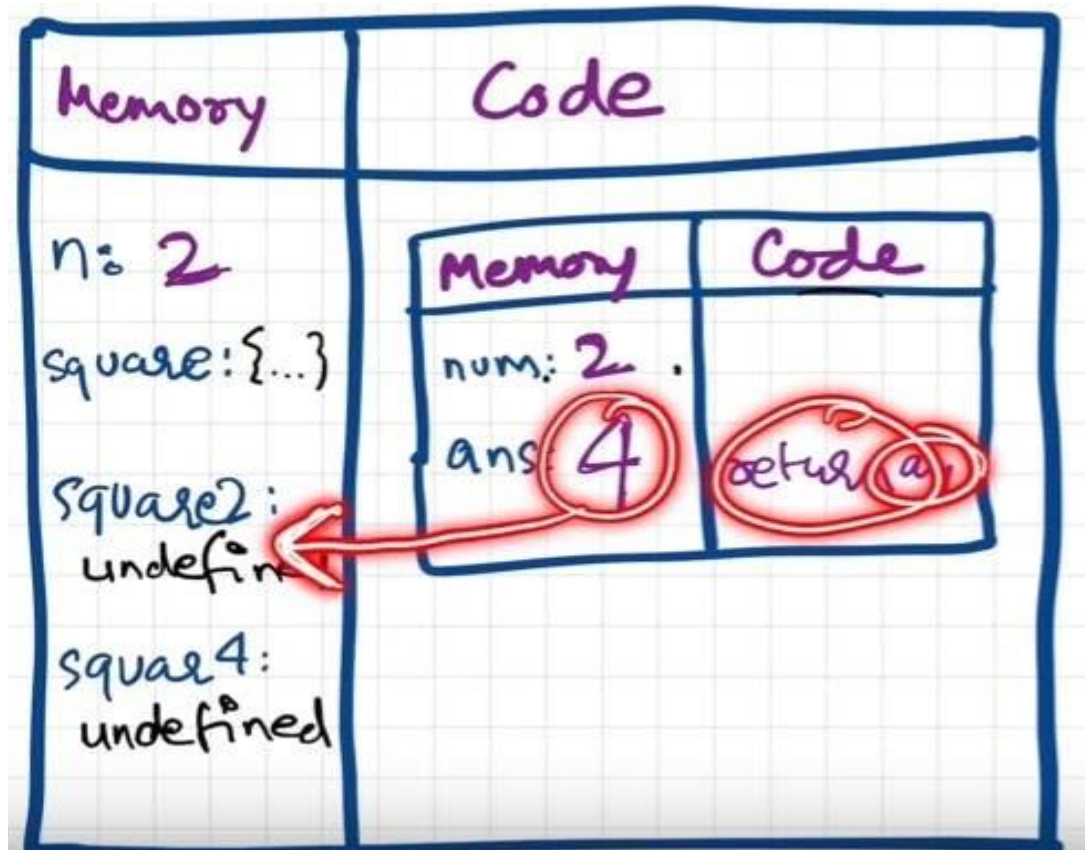 Memory
Code
n: 2
square: {...}
square2:
undefin
squar4:
undefined
Memory
Code
num: 2.
ans: 4
return